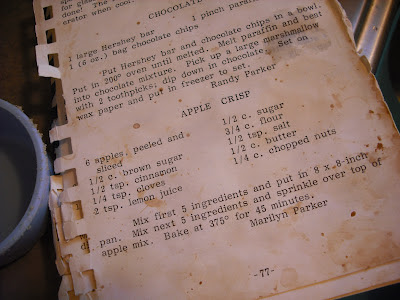 for gla
done. The
crator when cool.
CHOCOLATE
1 large Hershey bar 1 pinch paraf
1 (6 oz.) bag chocolate chips
Put Hershey bar and chocolate chips in a bowl.
Put in 200° oven until melted. Melt paraffin and best
into chocolate mixture. Pick up a large marshmallow
with 2 toothpicks, dip down in chocolate. Set on
wax paper and put in freezer to set.
Randy Parker
APPLE CRISP
6 apples, peeled and 1/2 c. sugar
sliced 3/4 c. flour
1/2 c. brown sugar 1/2 tsp. salt
1/2 tsp. cinnamon 1/2 c. butter
1/4 tsp. cloves 1/4 c. chopped nuts
2 tsp. lemon juice
Mix first 5 ingredients and put in 8 x 8-inch
pan. Mix next 5 ingredients and sprinkle over top of
apple mix. Bake at 375° for 45 minutes.
Marilyn Parker
-77-